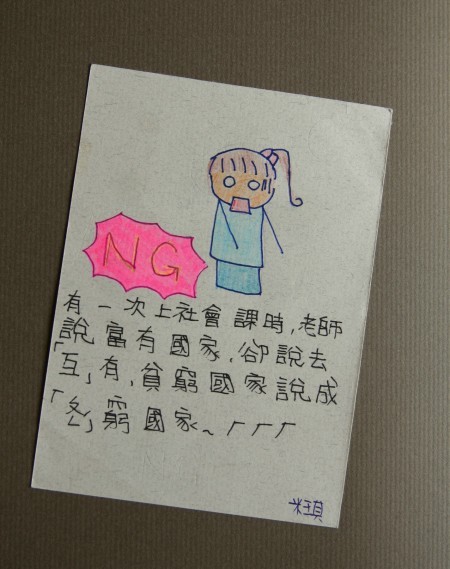 NG
有一次上社會課時,老師
說富有國家,卻說去
「互」有,貧窮國家說成
窮國家~ㄏㄏㄏ